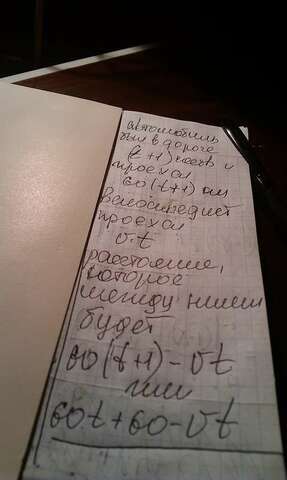 автомобиль
был в дороге
(t+1) часов и
проехал
60(t+1) км
Велосипедист
проехал
v·t
расстояние,
которое
между ними
будет
60(t+1)-vt
или
60t+60-vt